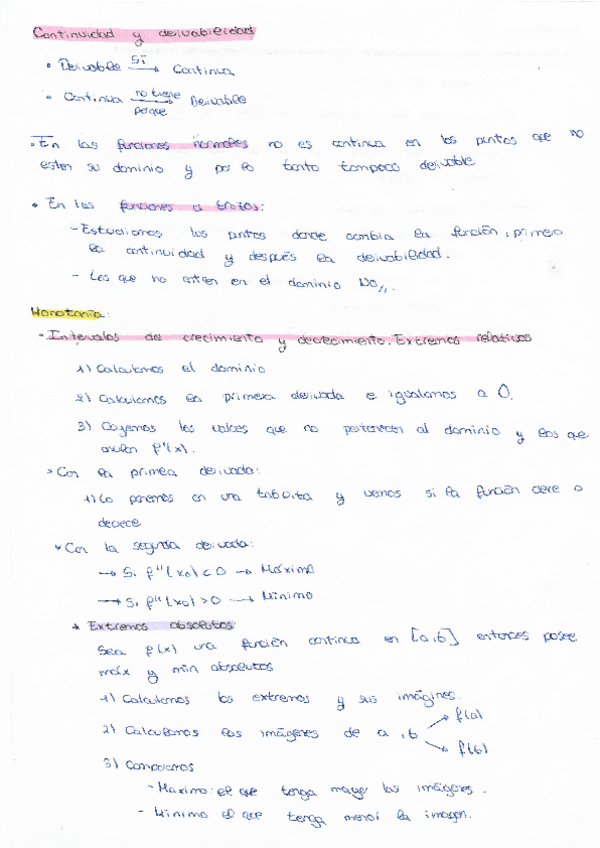 Continuidad y derivabilidad
• Derivable Sí → Continua
• Continua no tiene porque → Derivable
• En las funciones normales no es continua en los puntos que no
esten su dominio y por lo tanto tampoco derivable
• En las funciones a trozos:
- Estudiamos los puntos donde cambia la función, primero
la continuidad y después la derivabilidad.
- Los que no entren en el dominio NO,,.
Monotonía:
- Intervalos de crecimiento y decrecimiento. Extremos relativos
1) Calculamos el dominio
2) Calculamos la primera derivada e igualamos a 0.
3) Cogemos los valores que no pertenecen al dominio y los que
anulen f'(x).
• Con la primera derivada:
1) Lo ponemos en una tablita y vemos si la función crece o
decrece
• Con la segunda derivada:
→ Si f''(x0) < 0 → Máximo
→ Si f''(x0) > 0 → Mínimo
* Extremos absolutos
Sea f(x) una función continua en [a,b] entonces posee
máx y min absolutos
1) Calculamos los extremos y sus imágines.
2) Calculamos las imágenes de a, b → f(a)
→ f(b)
3) Comparamos
- Maximo: el que tenga mayor las imágenes.
- Mínimo el que tenga menor la imagen.